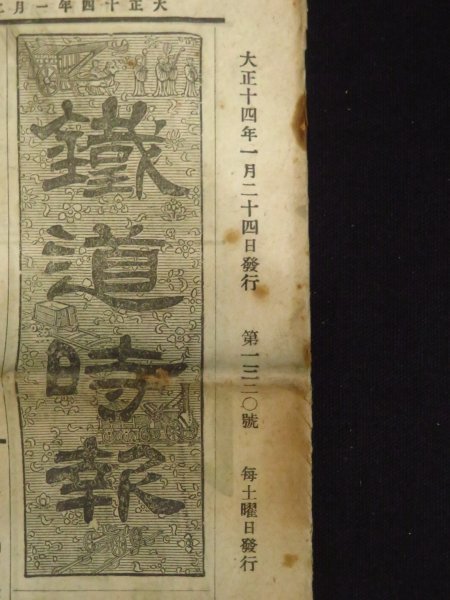 大正十四年一月二
大正十四年一月二十四日發行　第一三二〇號　每土曜日發行
鐵道時報